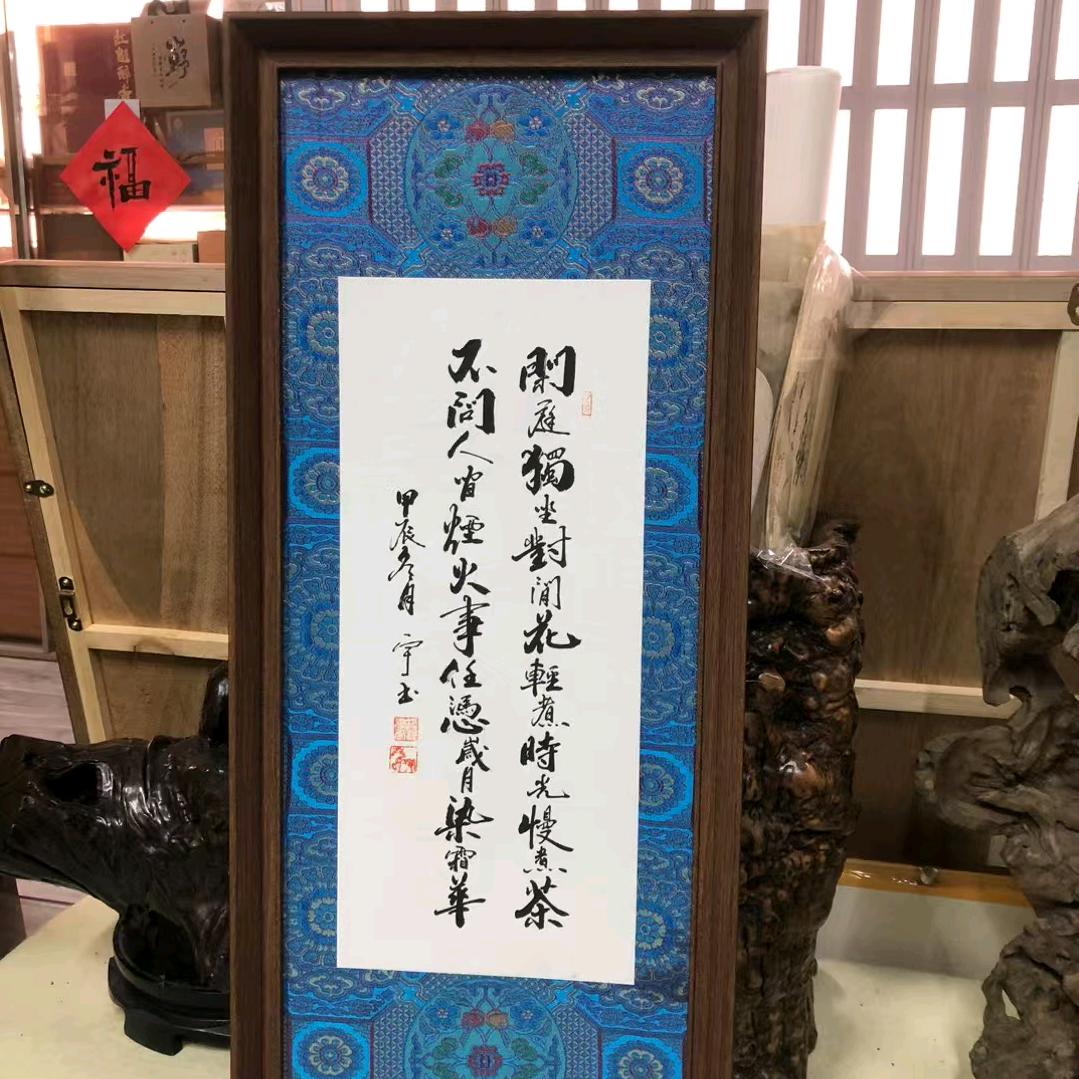 閑庭獨坐對閒花輕煮時光慢煮茶
不問人間煙火事任憑歲月染霜華
甲辰冬月 宇
福
野